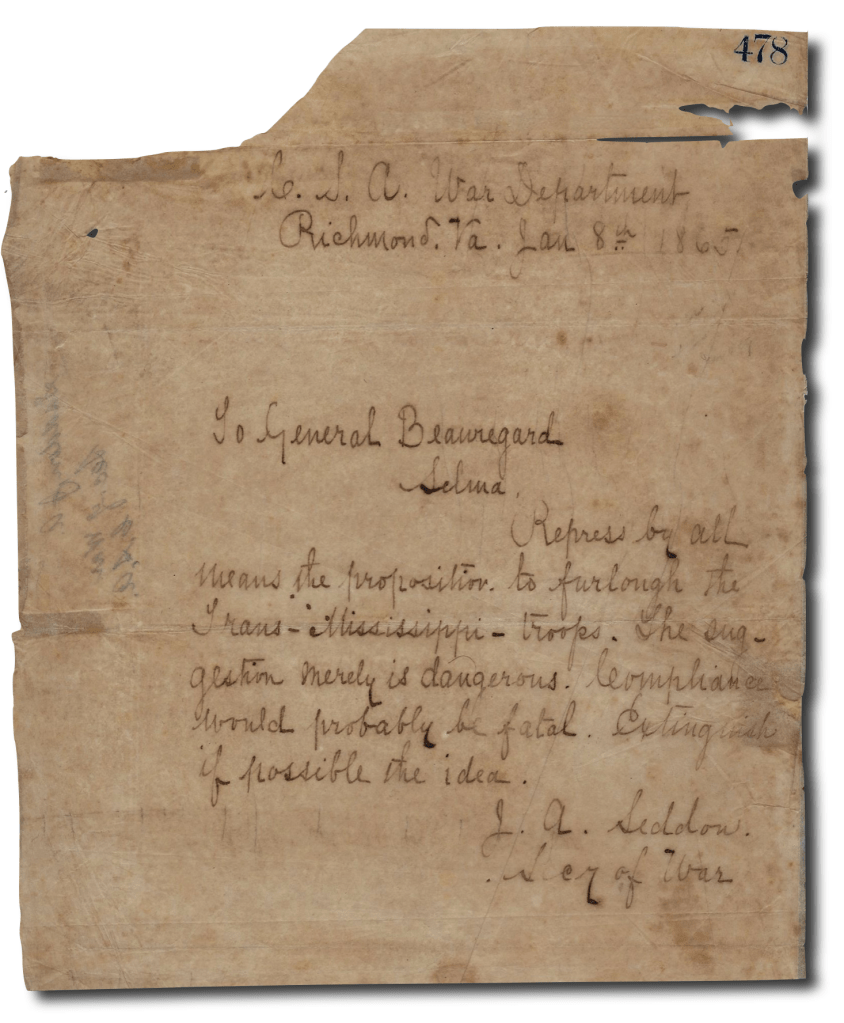 478
C. S. A. War Department
Richmond. Va. Jan 8th 1865.
To General Beauregard
Selma.
Repress by all
means the proposition to furlough the
Trans-Mississippi-troops. The sug-
gestion merely is dangerous. Compliance
would probably be fatal. Extinguish
if possible the idea.
J. A. Seddon.
Secy of War